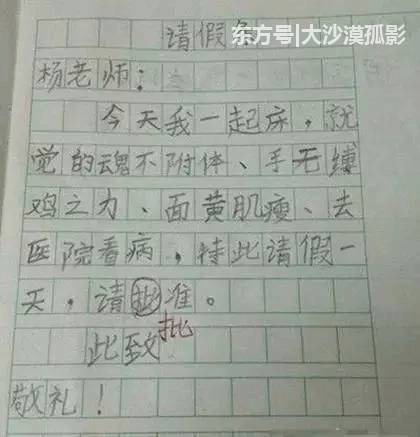 东方号|大沙漠孤影
请假条
杨老师：
今天我一起床，就
觉的魂不附体、手无缚
鸡之力、面黄肌瘦、去
医院看病，特此请假一
天，请批准。
批
此致
敬礼！